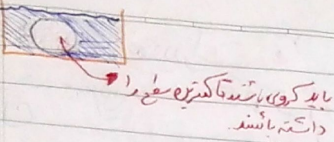 باید کروی باشند تا کمترین سطح را
داشته باشند.